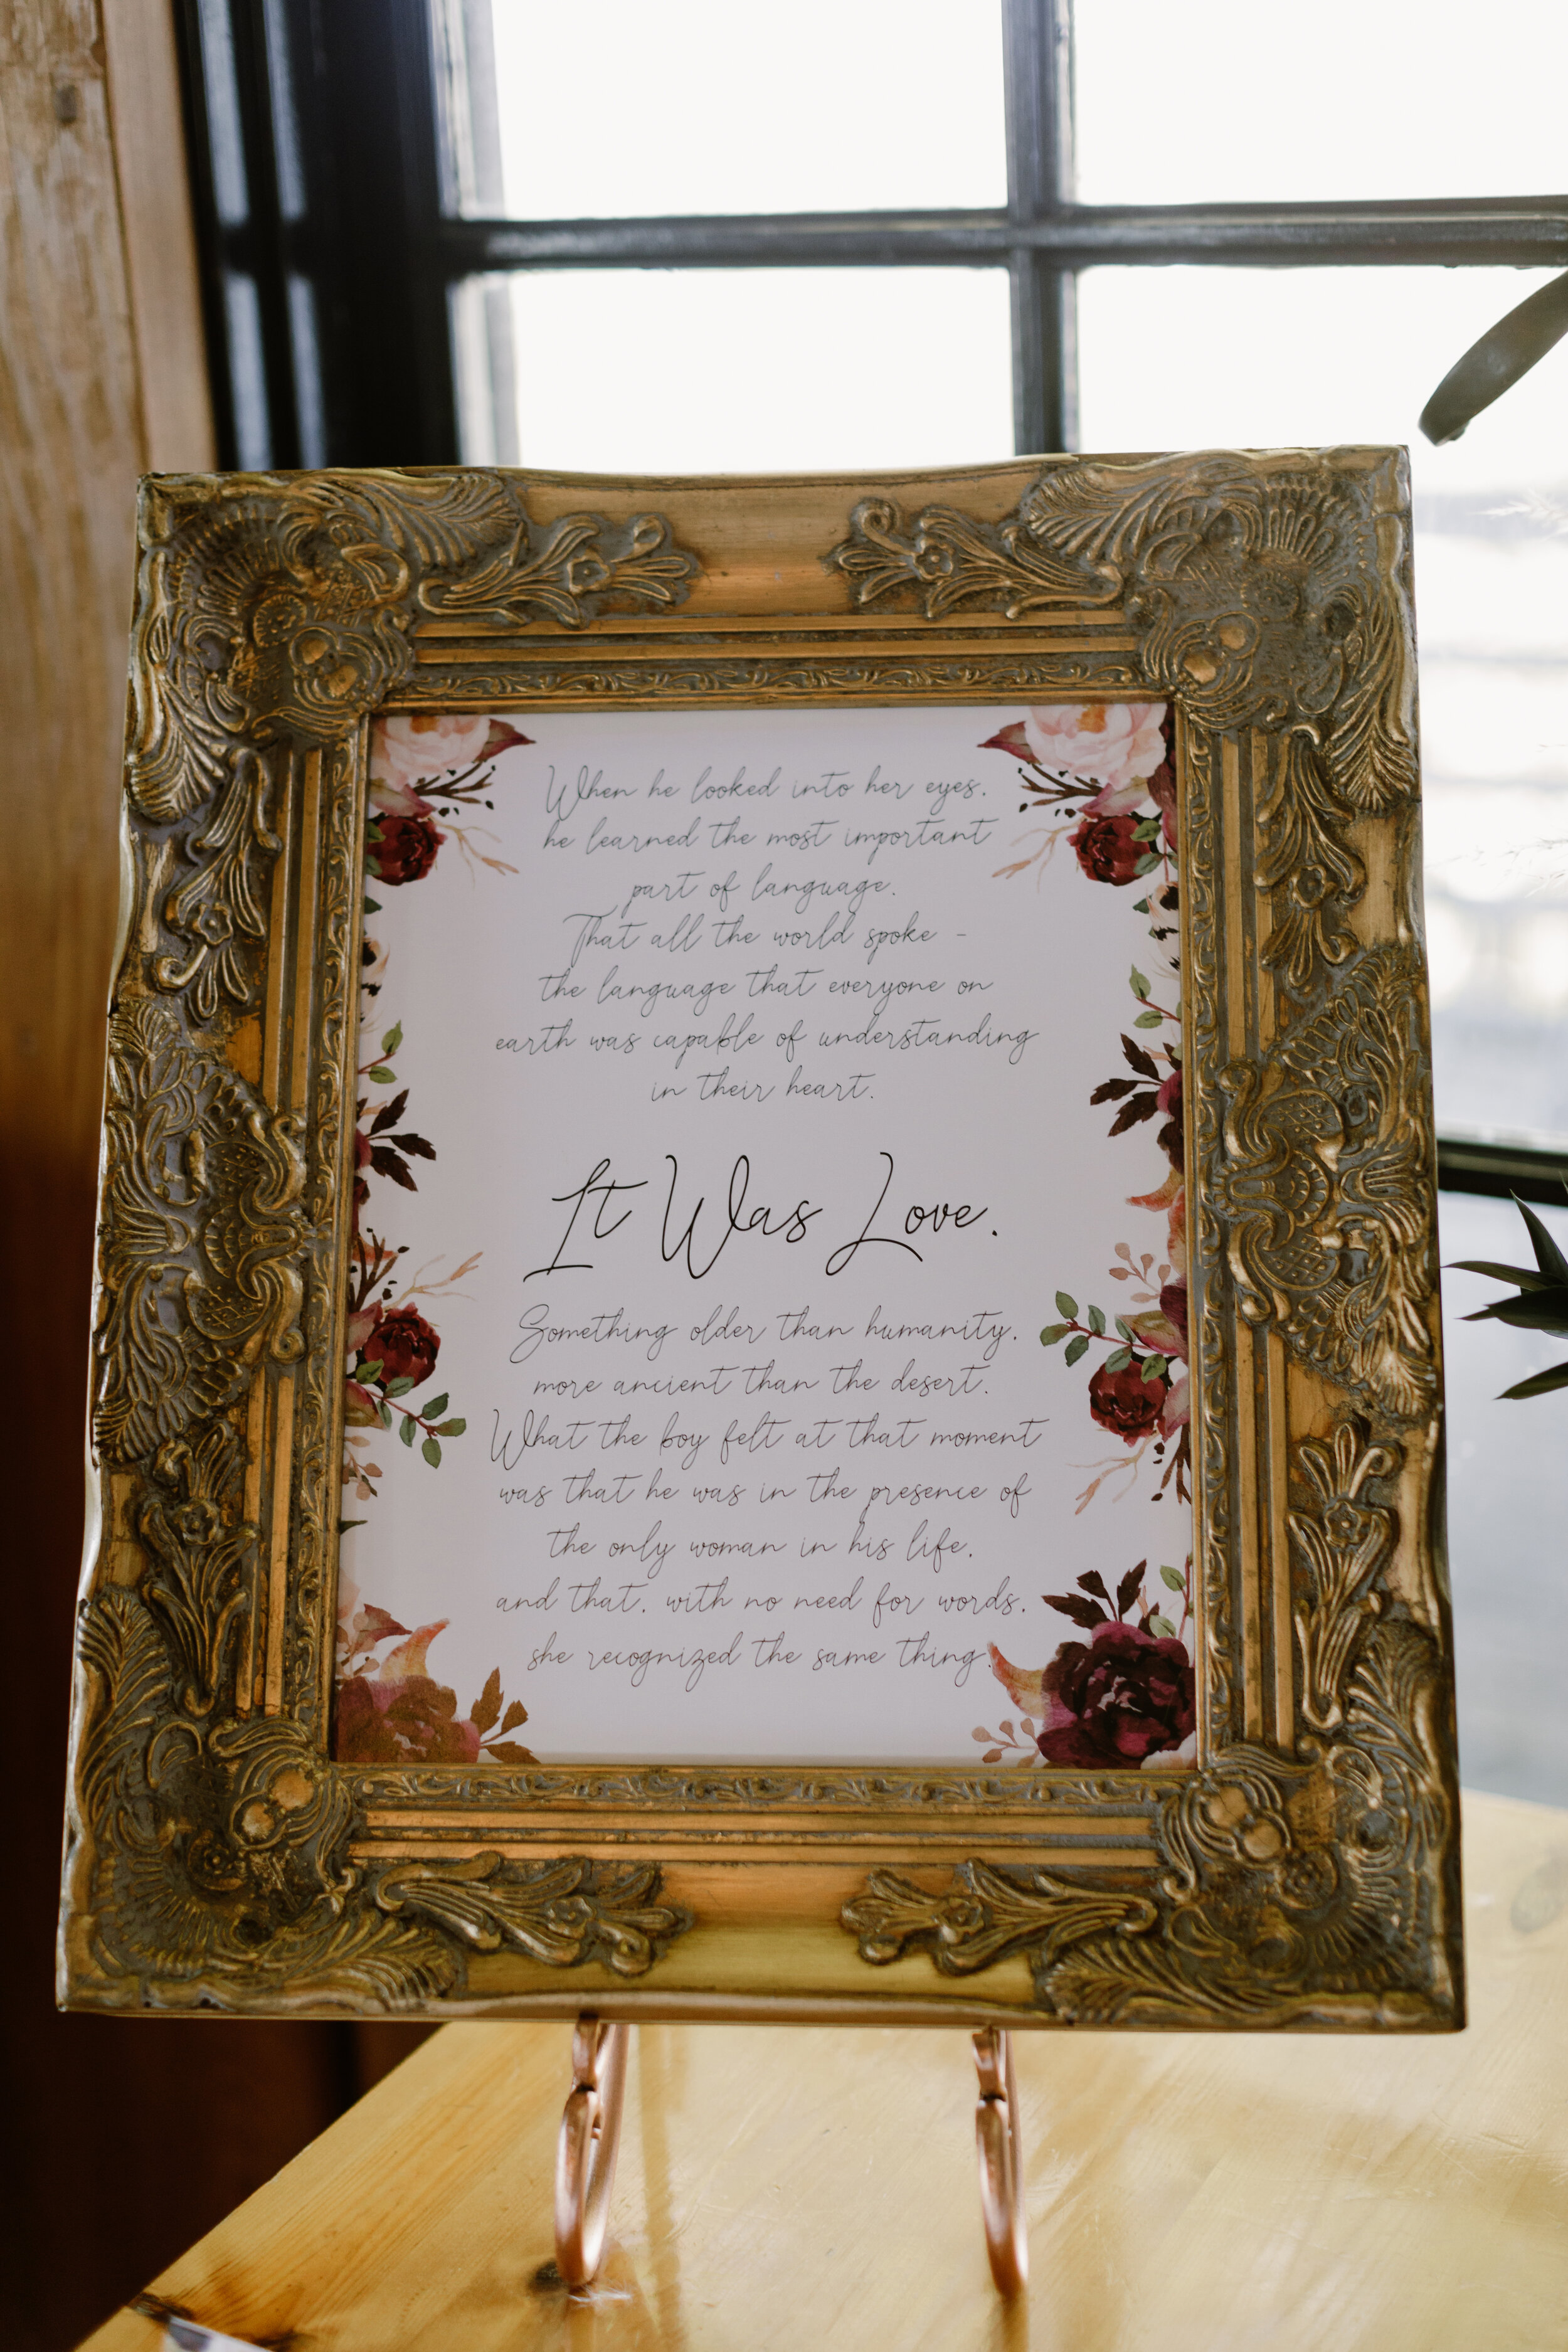 When he looked into her eyes,
he learned the most important
part of language.
That all the world spoke -
the language that everyone on
earth was capable of understanding
in their heart.
It Was Love.
Something older than humanity,
more ancient than the desert.
What the boy felt at that moment
was that he was in the presence of
the only woman in his life,
and that, with no need for words,
she recognized the same thing.